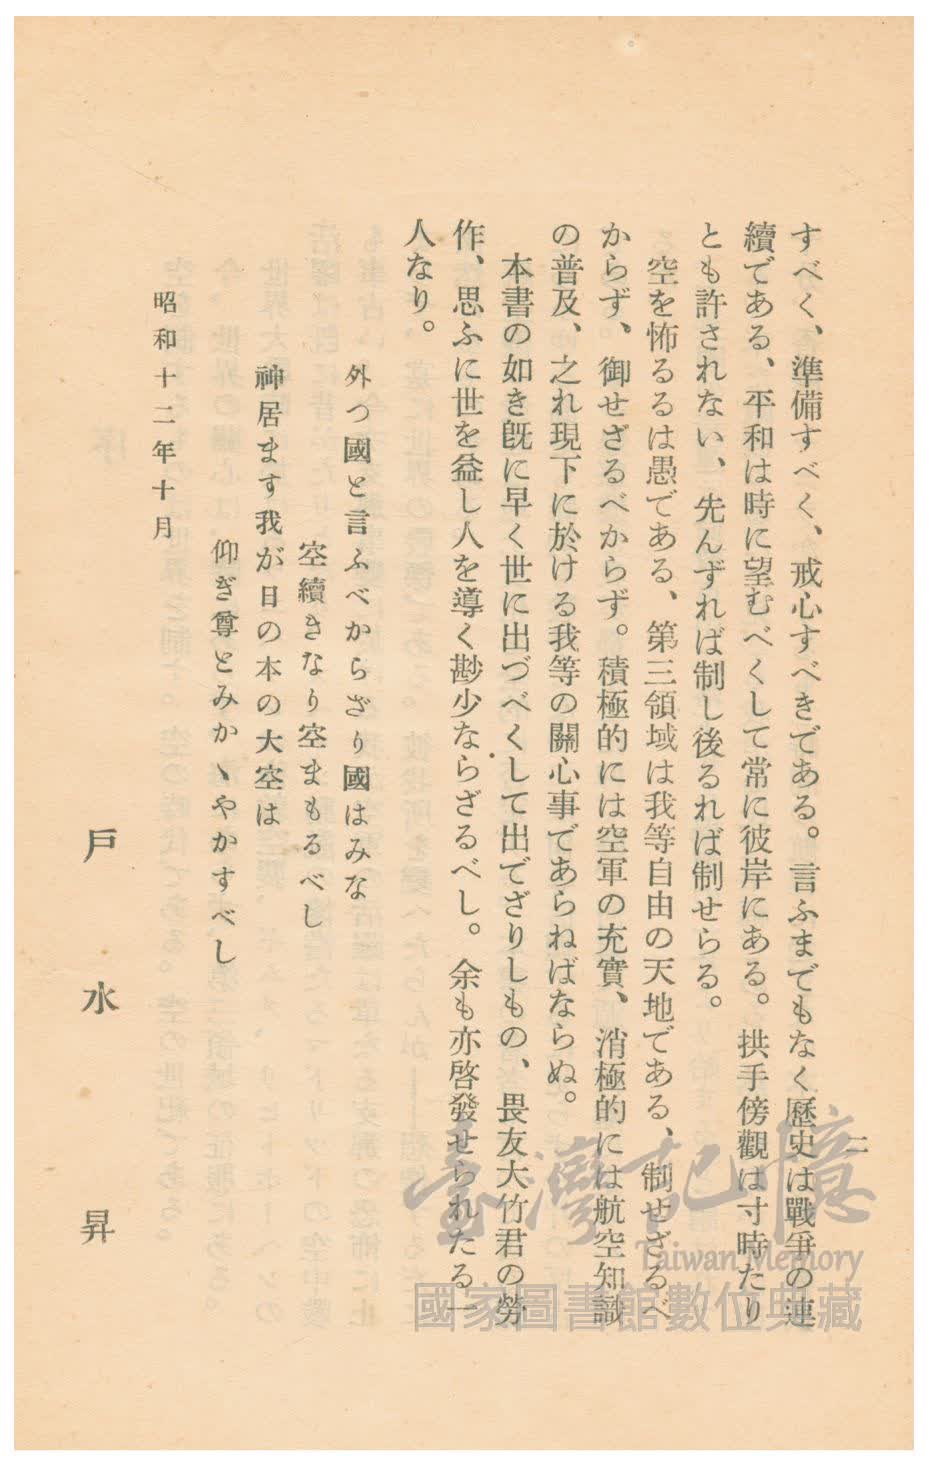 二
すべく、準備すべく、戒心すべきである。言ふまでもなく歷史は戰爭の連
續である、平和は時に望むべくして常に彼岸にある。拱手傍觀は寸時たり
とも許されない、先んずれば制し後るれば制せらる。
空を怖るるは愚である、第三領域は我等自由の天地である、制せざるべ
からず、御せざるべからず。積極的には空軍の充實、消極的には航空知識
の普及、之れ現下に於ける我等の關心事であらねばならぬ。
本書の如き旣に早く世に出づべくして出でざりしもの、畏友大竹君の勞
作、思ふに世を益し人を導く尠少ならざるべし。余も亦啓發せられたる一
人なり。
外つ國と言ふべからざり國はみな
空續きなり空まもるべし
神居ます我が日の本の大空は
仰ぎ尊とみかゝやかすべし
昭和十二年十月
戶水昇
臺灣記憶
Taiwan Memory
國家圖書館數位典藏